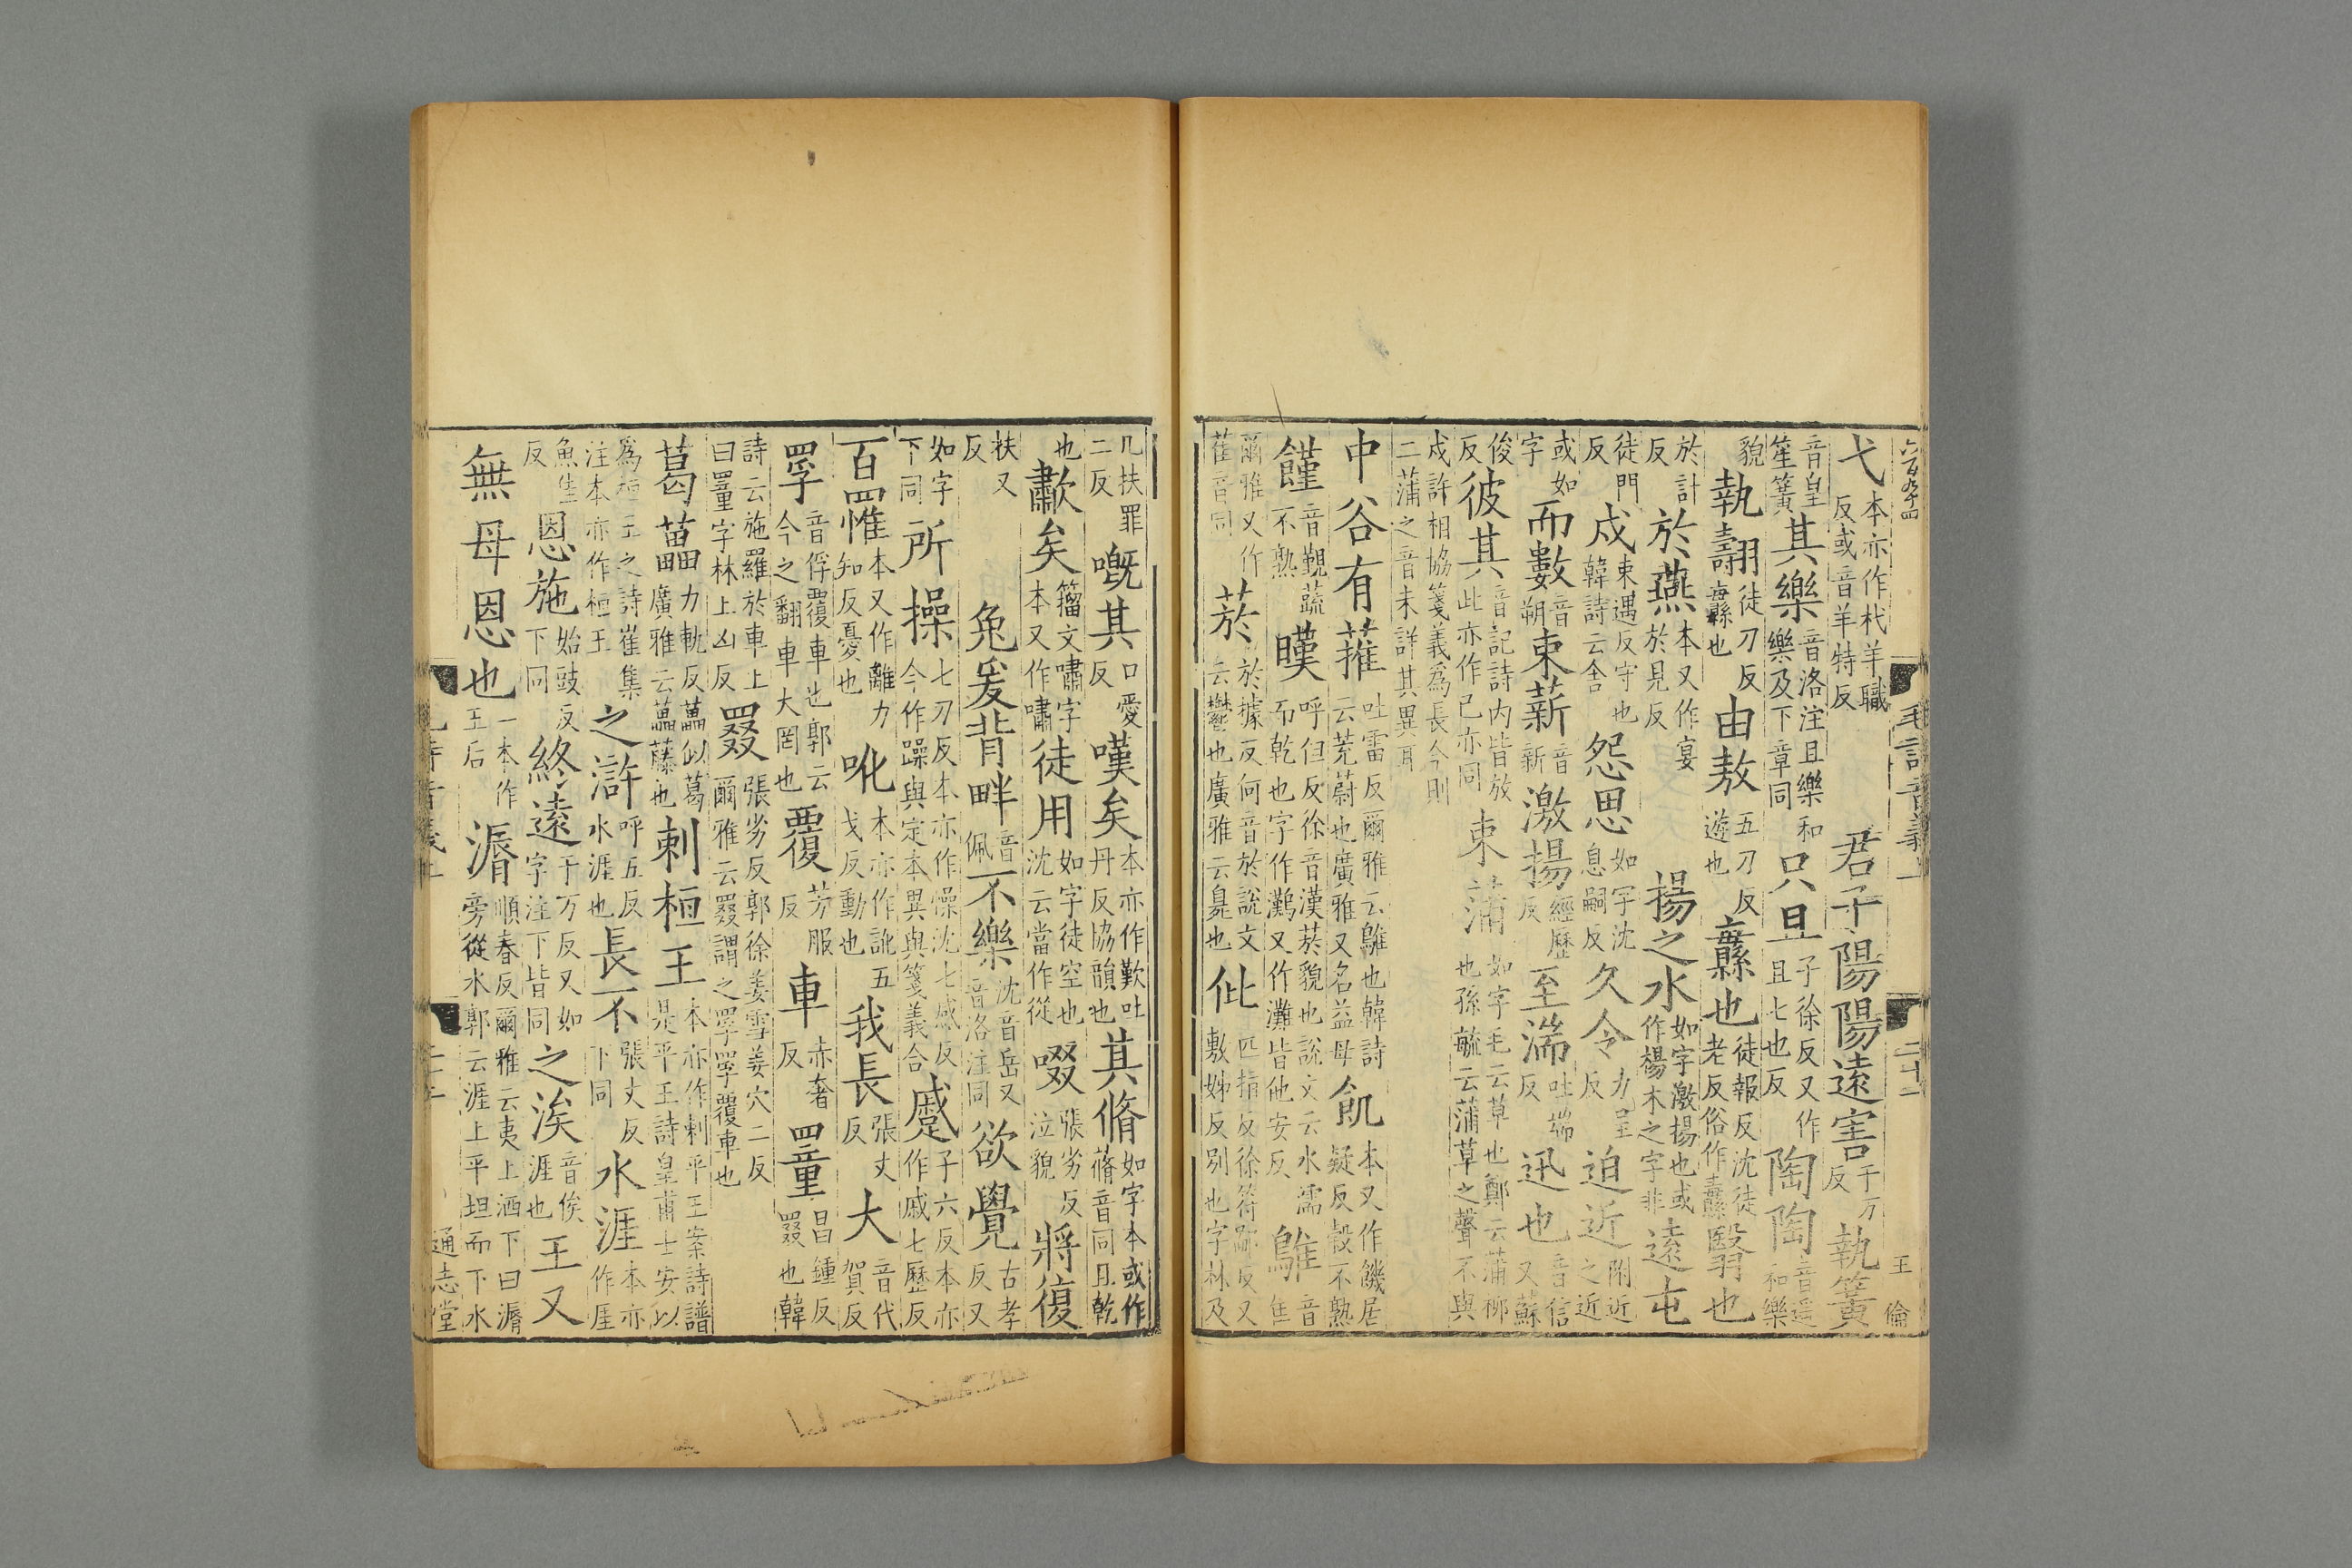 弋本亦作杙羊職反或音羊特反 君子陽陽遠害于万反執簧
音皇笙簧其樂音洛注且樂和樂及下章同只且子徐反又作且七也反陶陶音遥和樂
貌執翿徒刀反毒縣也由敖五刀反遊也纛也徒報反沈徒老反俗作翳也
於計反於燕本又作宴於見反 揚之水如字激揚也或作楊木之字非遠屯
徒門反戍束遇反守也韓詩云舍怨思如字沈息嗣反久令力呈反迫近附近之近
或如字而數音朔束薪音新激揚經歷反至湍吐端反迅也音信又蘇
俊反彼其音記詩内皆放此亦作己亦同束蒲如字毛云草也鄭云蒲柳也孫毓云蒲草之聲不與
戍許相協箋義爲長今則二蒲之音未詳其異耳
中谷有蓷吐雷反爾雅云鵻也韓詩云茺蔚也廣雅又名益母飢本又作饑居疑反穀不熟
饉音覲蔬不熟暵呼但反徐音漢菸貌也說文云水濡而乾也字作灘又作灘皆他安反鵻音隹
爾雅又作萑音同菸於據反何音於說文云鬱也廣雅云臰也仳匹指反徐符鄙反又敷姊反别也字林及
几扶罪二反嘅其口愛反嘆矣本亦作歎吐丹反協韻也其脩如字本或作蓨音同且乾
也歗矣籀文嘯字本又作嘯徒用如字徒空也沈云當作從啜張劣反泣貌將復
扶又反 兔爰背畔音佩不樂沈音岳又音洛注同欲覺古孝反又
如字下同所操七刀反本亦作懆沈七感反今作躁與定本異與箋義合蹙子六反本亦作戚七歷反
百罹本又作離力知反憂也吪本亦作訛五戈反動也我長張丈反大音代賀反
罦音俘覆車也郭云今之翻車大罔也覆芳服反車赤奢反罿昌鍾反罬也韓
詩云施羅於車上曰罿字林上凶反罬張劣反郭徐姜雪姜穴二反爾雅云罬謂之罦罦覆車也
葛藟力軌反藟似葛廣雅云藟藤也刺桓王本亦作刺平王案詩譜是平王詩皇甫士安以
爲桓王之詩崔集注本亦作桓王之滸呼五反水涯也長不張丈反下同水涯本亦作厓
魚隹反恩施始豉反下同終遠于万反又如字注下皆同之涘音俟涯也王又
無母恩也一本作王后漘順春反爾雅云夷上洒下曰漘旁從水郭云涯上平坦而下水
毛詩音義上
二十二
王倫
通志堂